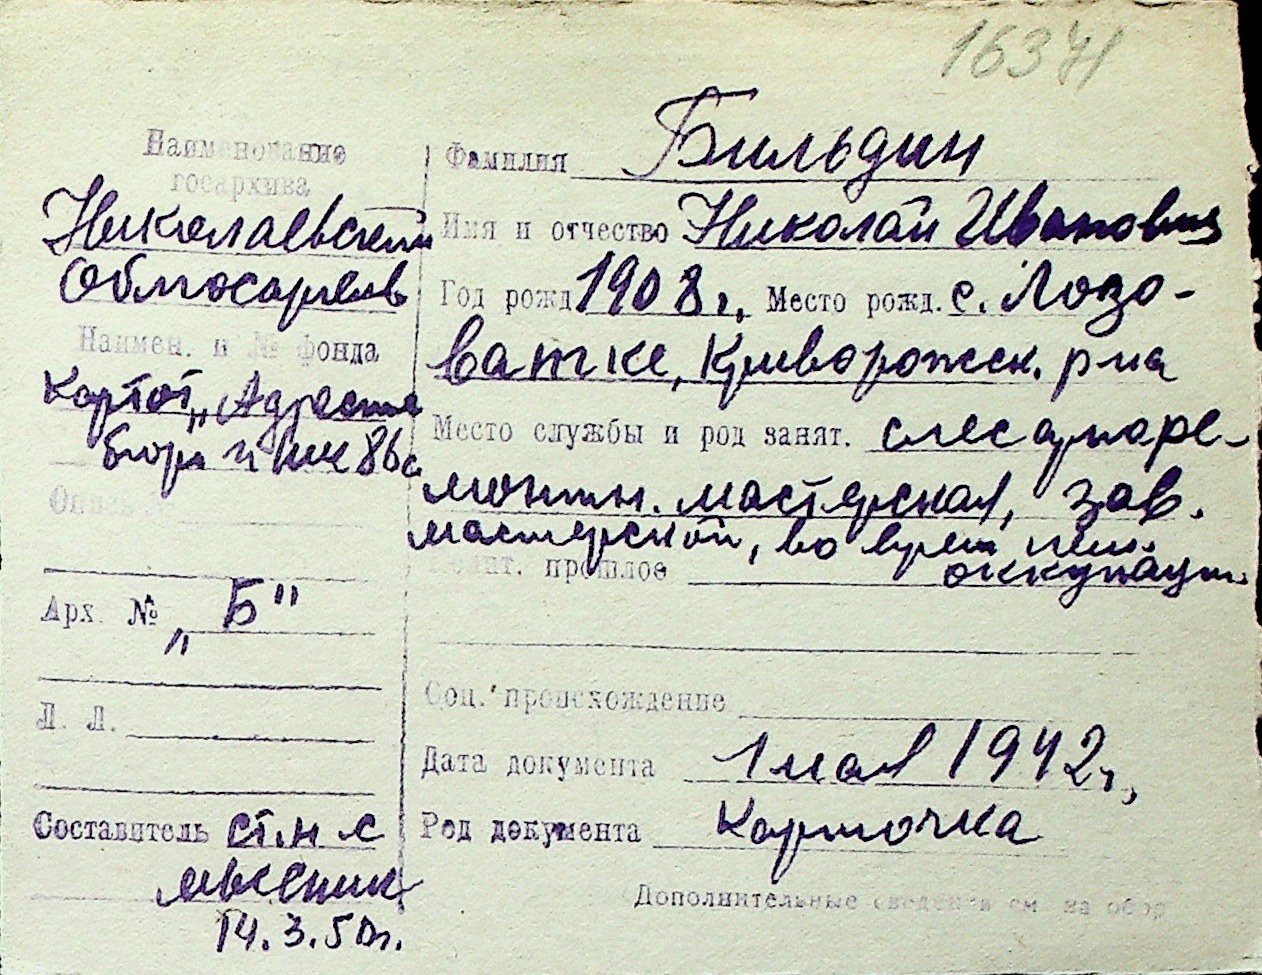 16371
Наименование
госархива
Николаевский
Облгосархив
Наимен. и № фонда
Картот. „Адресное
бюро"
Опись №
Арх. № „Б"
Л. Л.
Составитель ст. н. с
14.3.50г.
Фамилия Бильдин
Имя и отчество Николай Иванович
Год рожд 1908 г., Место рожд. с. Лозо-
ватке, Криворожск. р-на
Место службы и род занят. слесарноре-
монтн. мастерская, зав.
мастерской, во врем. нем.
оккупации.
прошлое
Соц. происхождение
Дата документа 1 мая 1942г.,
Род документа Карточка
Дополнительные сведения см на обор